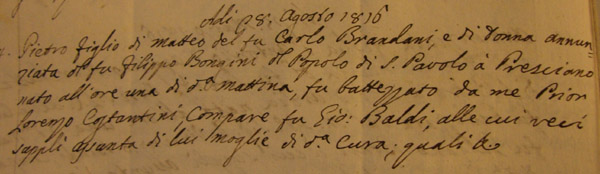 Addì 28. Agosto 1816
Pietro figlio di Matteo del fu Carlo Brandani, e di Donna annun=
ziata del fu Filippo Bongini del Popolo di S. Pavolo à Presciano
nato all'ore una di d.ª mattina, fu battezzato da me Prior
Lorenzo Costantini, Compare fu Gio: Baldi, alle cui veci
supplì assunta di lui moglie di d.ª Cura; quali &c